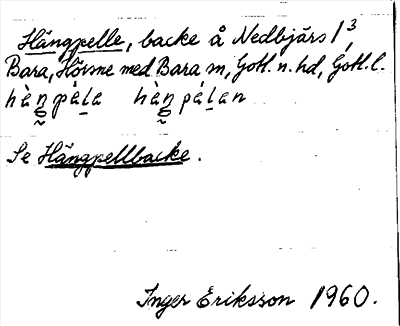 Hängpelle, backe å Nedbjärs 1³,
Bara, Hörsne med Bara sn, Gotl. n. hd, Gotl. l.
hàŋpála hàŋpálan
Se Hängpellbacke.
Inger Eriksson 1960.